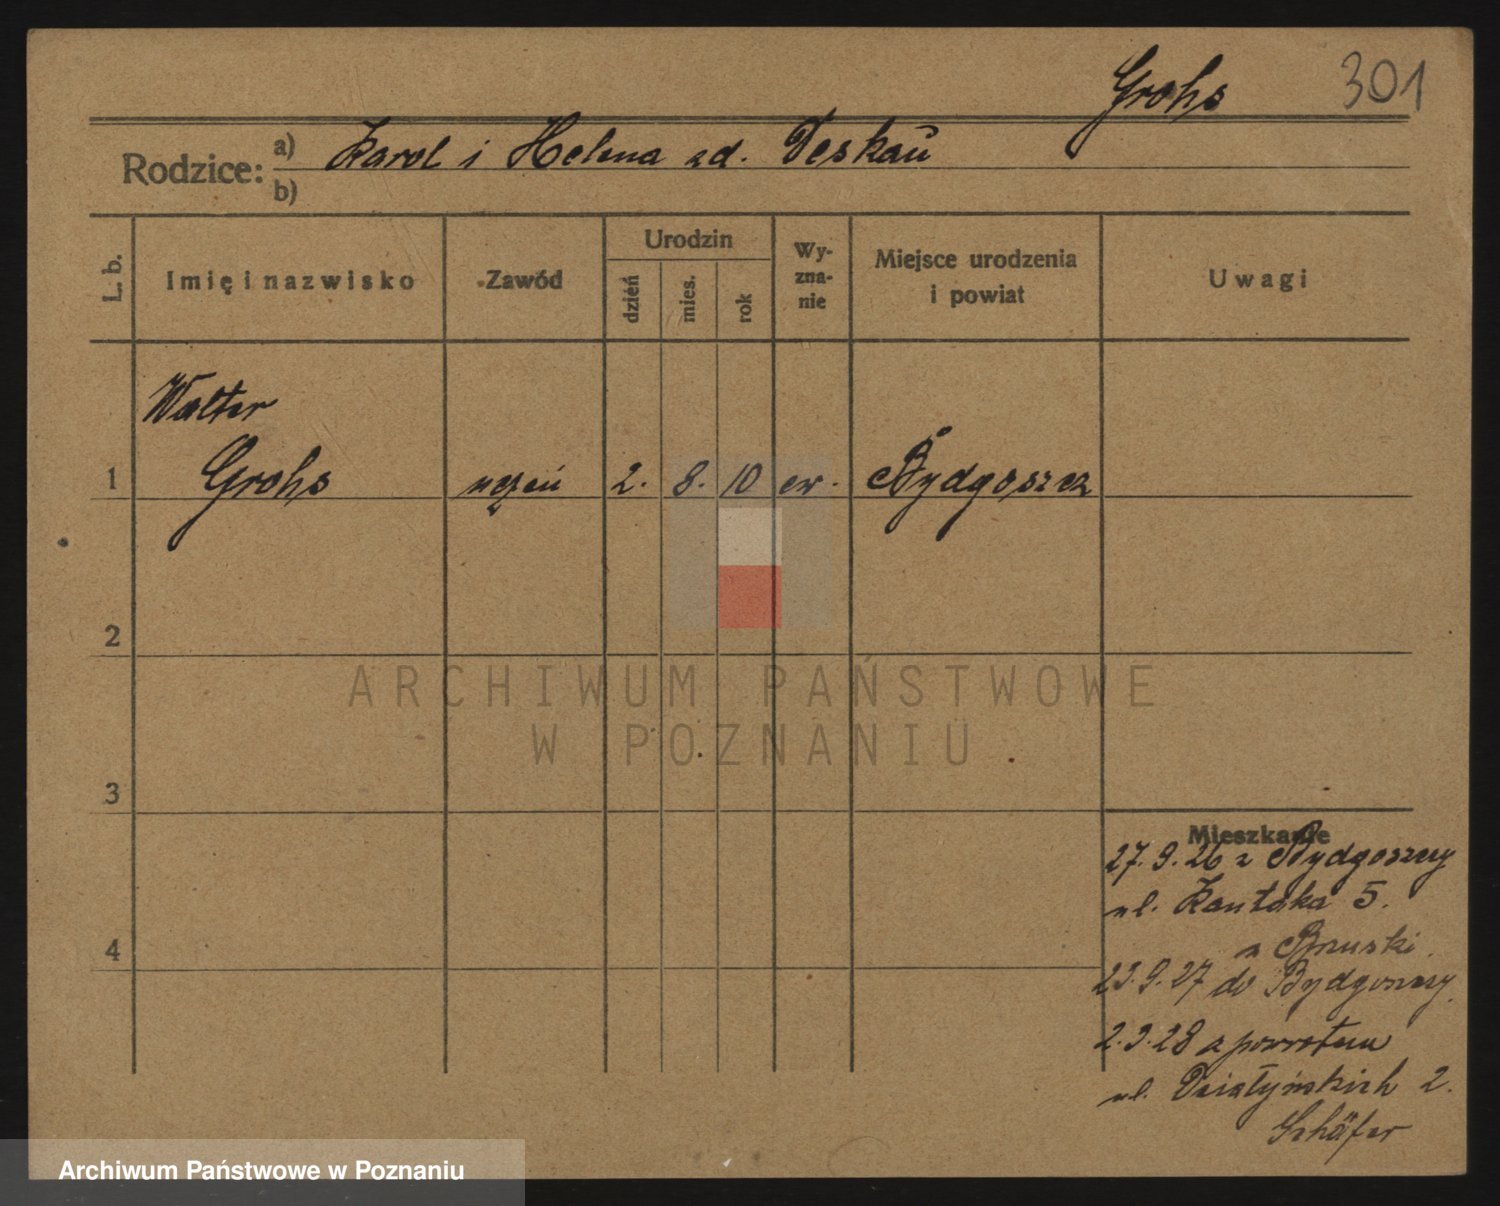 Grohs 301
Rodzice: a) Karol i Helena zd. Deskau
b)
L. b. Imię i nazwisko Zawód Urodzin dzień mies. rok Wy-zna-nie Miejsce urodzenia i powiat Uwagi
Walter
1 Grohs uczeń 2. 8. 10 ew. Bydgoszcz
2
ARCHIWUM PAŃSTWOWE
W POZNANIU
3
Mieszkanie
27. 9. 26 z Bydgoszczy
ul. Kantaka 5.
4
23. 9. 27 do Bydgoszczy
2. 3. 28 z powrotem
ul. Działyńskich 2.
Schäfer
Archiwum Państwowe w Poznaniu